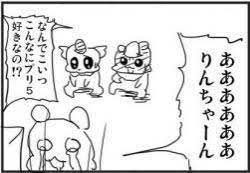 ああああああ
りんちゃーん
なんでこいつ
こんなに75
好きなの!?